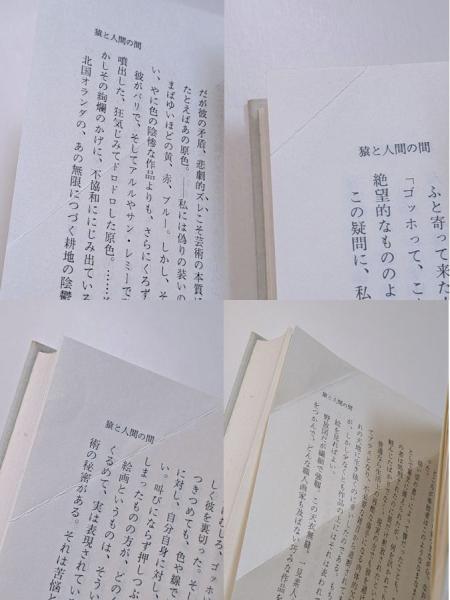 猿と人間の間
だが彼の矛盾、悲劇的なズレこそ芸術の本質に
たとえばあの原色。――私には偽りの装いの
まばゆいほどの黄、赤、ブルー。しかし、そ
い、やに色の陰惨な作品よりも、さらにくろず
彼がパリで、そしてアルルやサン・レミーで
噴出した、狂気じみてドロドロした原色。……そ
かしその絢爛のかげに、不協和ににじみ出ている
北国オランダの、あの無限につづく耕地の陰鬱
猿と人間の間
ふと寄って来た
「ゴッホって、こ
絶望的なもののよ
この疑問に、私
猿と人間の間
むしろ、ゴッホ
しく彼を裏切った。そし
つきつめても、色や線で
に対し、自分自身に対し、
い。叫びにならず押しつぶ
しまったものの方が、どの
絵画というものは、そうい
くるめて、実は表現されてい
術の秘密がある。それは苦悩と
猿と人間の間
絵を見ればよい。
野放図だが繊細で強靱、この天衣無縫、一見素人
をつかんで、どんな職人画家も及ばない巧みな作品